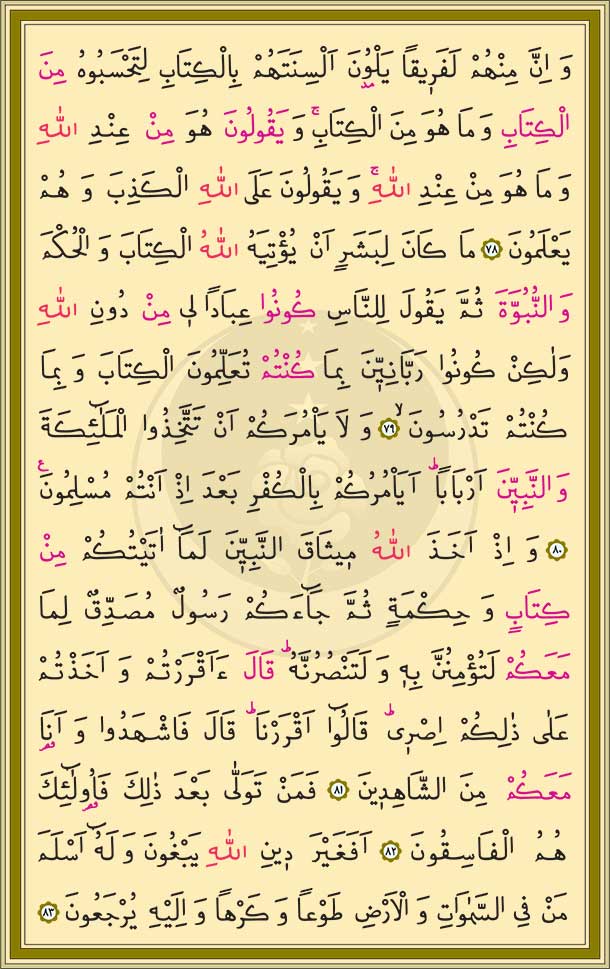 وَ اِنَّ مِنْهُمْ لَفَرٖيقًا يَلْوُ۫نَ اَلْسِنَتَهُمْ بِالْكِتَابِ لِتَحْسَبُوهُ مِنَ
الْكِتَابِ وَ مَا هُوَ مِنَ الْكِتَابِۚ وَ يَقُولُونَ هُوَ مِنْ عِنْدِ اللّٰهِ
وَ مَا هُوَ مِنْ عِنْدِ اللّٰهِۚ وَ يَقُولُونَ عَلَى اللّٰهِ الْكَذِبَ وَ هُمْ
يَعْلَمُونَ ﴿٧٨﴾ مَا كَانَ لِبَشَرٍ اَنْ يُؤْتِيَهُ اللّٰهُ الْكِتَابَ وَ الْحُكْمَ
وَ النُّبُوَّةَ ثُمَّ يَقُولَ لِلنَّاسِ كُونُوا عِبَادًا لٖى مِنْ دُونِ اللّٰهِ
وَلٰكِنْ كُونُوا رَبَّانِيّٖنَ بِمَا كُنْتُمْ تُعَلِّمُونَ الْكِتَابَ وَ بِمَا
كُنْتُمْ تَدْرُسُونَۙ ﴿٧٩﴾ وَ لَا يَاْمُرَكُمْ اَنْ تَتَّخِذُوا الْمَلٰٓئِكَةَ
وَ النَّبِيّٖنَ اَرْبَابًاؕ اَيَاْمُرُكُمْ بِالْكُفْرِ بَعْدَ اِذْ اَنْتُمْ مُسْلِمُونَࣖ
﴿٨٠﴾ وَ اِذْ اَخَذَ اللّٰهُ مٖيثَاقَ النَّبِيّٖنَ لَمَٓا اٰتَيْتُكُمْ مِنْ
كِتَابٍ وَ حِكْمَةٍ ثُمَّ جَٓاءَكُمْ رَسُولٌ مُصَدِّقٌ لِمَا
مَعَكُمْ لَتُؤْمِنُنَّ بِهٖ وَ لَتَنْصُرُنَّهُؕ قَالَ ءَاَقْرَرْتُمْ وَ اَخَذْتُمْ
عَلٰى ذٰلِكُمْ اِصْرٖىؕ قَالُٓوا اَقْرَرْنَاؕ قَالَ فَاشْهَدُوا وَ اَنَا۬
مَعَكُمْ مِنَ الشَّاهِدٖينَ ﴿٨١﴾ فَمَنْ تَوَلّٰى بَعْدَ ذٰلِكَ فَاُو۬لٰٓئِكَ
هُمُ الْفَاسِقُونَ ﴿٨٢﴾ اَفَغَيْرَ دٖينِ اللّٰهِ يَبْغُونَ وَ لَهُٓ اَسْلَمَ
مَنْ فِى السَّمٰوَاتِ وَ الْاَرْضِ طَوْعًا وَ كَرْهًا وَ اِلَيْهِ يُرْجَعُونَ ﴿٨٣﴾